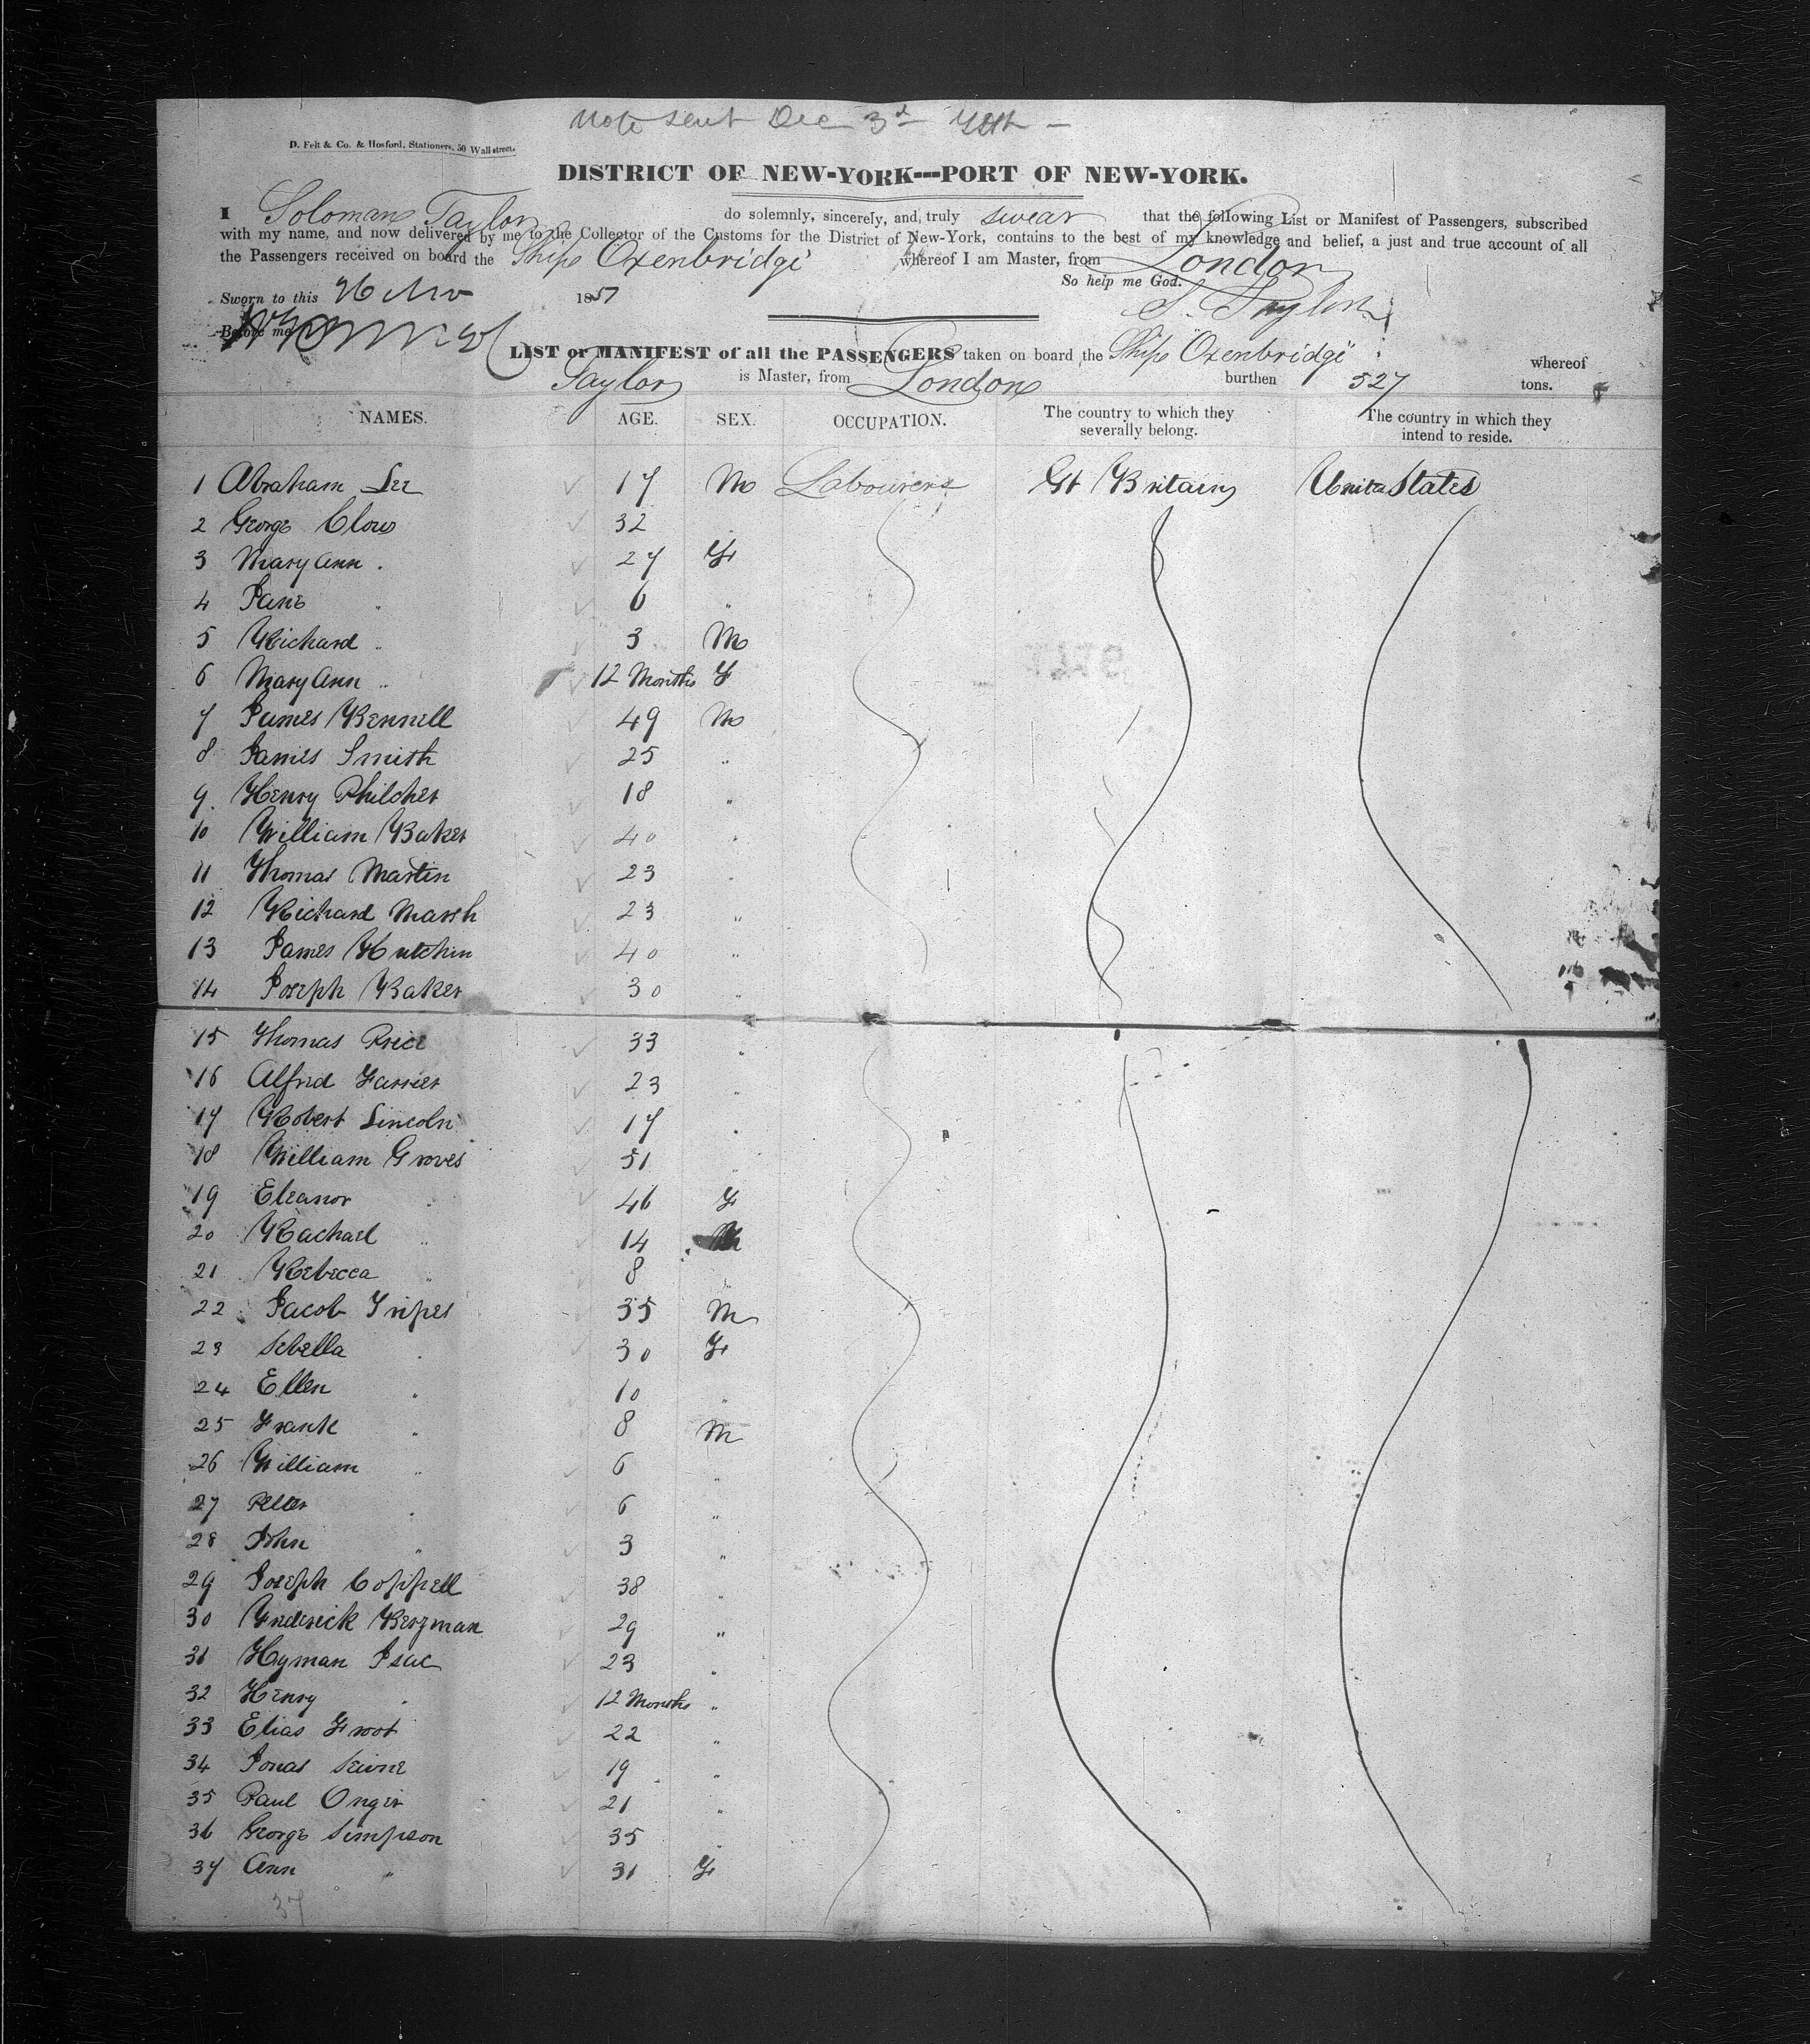 Note sent Dec 3d
D. Felt & Co. & Hosford, Stationers, 50 Wall street.
DISTRICT OF NEW-YORK---PORT OF NEW-YORK.
I Soloman Taylor do solemnly, sincerely, and, truly swear that the following List or Manifest of Passengers, subscribed
with my name, and now delivered by me to the Collector of the Customs for the District of New-York, contains to the best of my knowledge and belief, a just and true account of all
the Passengers received on board the Ship Oxenbridge whereof I am Master, from London
So help me God.
Sworn to this 26 Nov 1851 S. Taylor
Before me
LIST or MANIFEST of all the PASSENGERS taken on board the Ship Oxenbridge whereof
Taylor is Master, from London burthen 527 tons.
NAMES. AGE. SEX. OCCUPATION. The country to which they severally belong. The country in which they intend to reside.
1 Abraham Lee 17 M Labourers Gt Britain United States
2 George Clow 32
3 Mary Ann . 27 F
4 Jane " 6 "
5 Richard " 3 M
6 Mary Ann " 12 Months F
7 James Kennell 49 M
8 James Smith 25 "
9 Henry Philcher 18 "
10 William Baker 40 "
11 Thomas Martin 23 "
12 Richard Marsh 23 "
13 James Hutchin 40 "
14 Joseph Baker 30 "
15 Thomas Price 33 "
16 Alfred Farrier 23 "
17 Robert Lincoln 17 "
18 William Groves 51 "
19 Eleanor " 46 F
20 Rachael " 14
21 Rebecca " 8 "
22 Jacob Tripes 35 M
23 Sebella " 30 F
24 Ellen " 10 "
25 Frank " 8 M
26 William " 6 "
27 Peter " 6 "
28 John " 3 "
29 Joseph Coppell 38 "
30 Frederick Bergman 29 "
31 Hyman Isac 23 "
32 Henry " 12 Months "
33 Elias Froot 22 "
34 Jonas 19 "
35 Paul Onger 21 "
36 George Simpson 35 "
37 Ann " 31 F
37